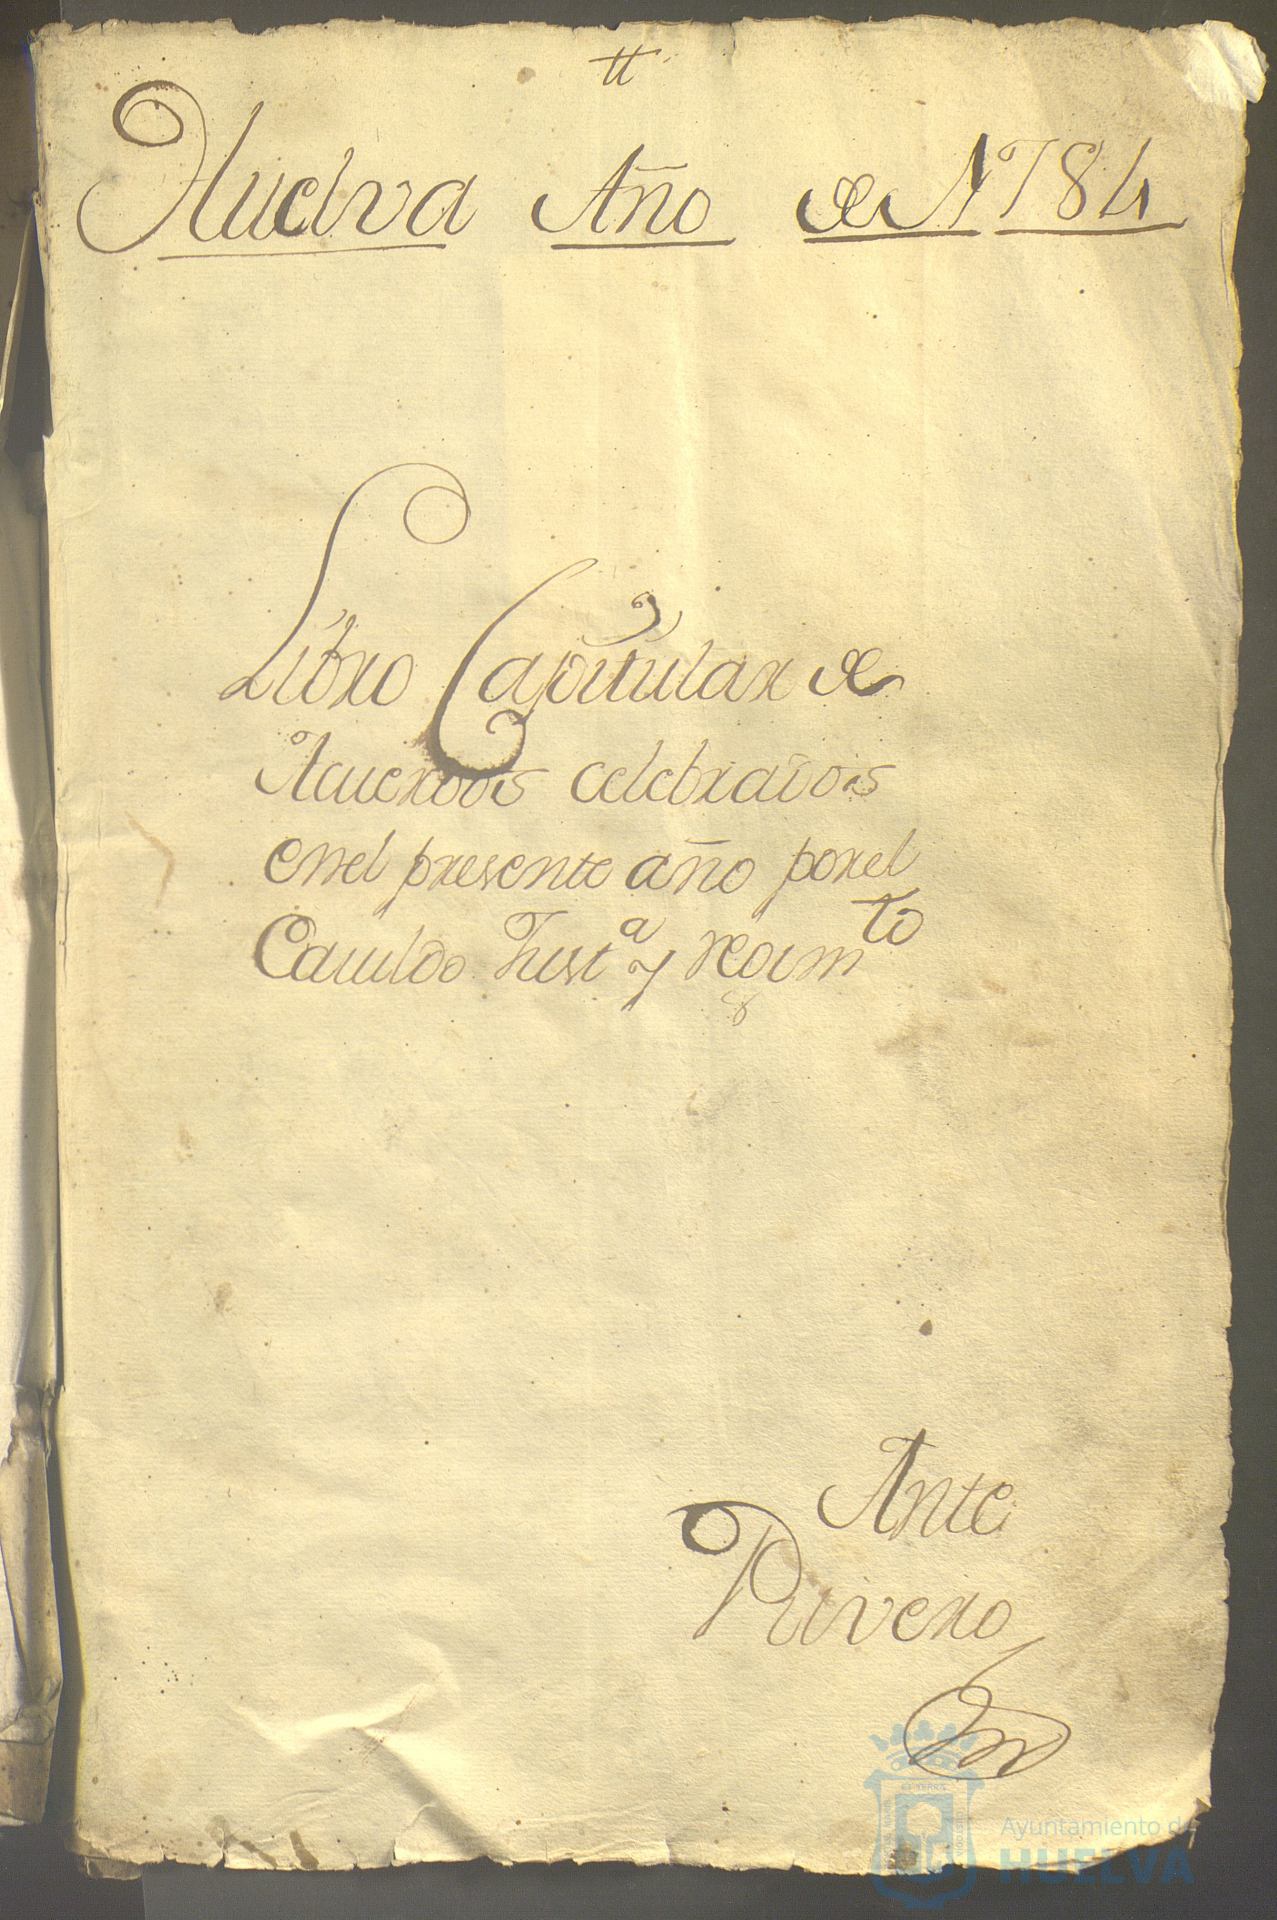 tt
Huelva Año de 1784
Libro Capitular de
Acuerdos celebrados
en el presente año por el
Cavildo Just.ª y Regimto
Ante
Rivero
Ayuntamiento de
HUELVA